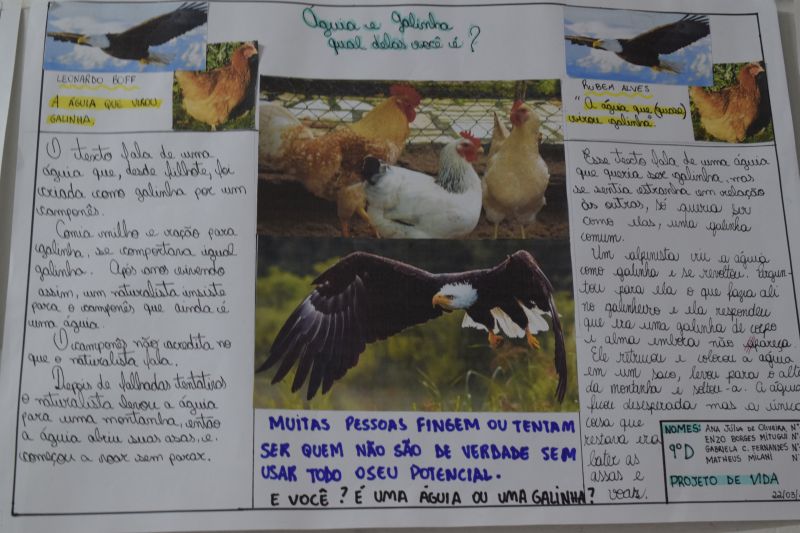 Águia e Galinha
qual delas você é?
LEONARDO BOFF
A ÁGUIA QUE VIROU
GALINHA
O texto fala de uma
águia que, desde filhote, foi
criada como galinha por um
camponês.
Comia milho e ração para
galinha, se comportava igual
galinha. Após anos vivendo
assim, um naturalista insiste
para o camponês que ainda é
uma águia.
O camponês não acredita no
que o naturalista fala.
Depois de falhadas tentativas
o naturalista levou a águia
para uma montanha, então
a águia abriu suas asas, e
começou a voar sem parar.
MUITAS PESSOAS FINGEM OU TENTAM
SER QUEM NÃO SÃO DE VERDADE SEM
USAR TODO O SEU POTENCIAL.
E VOCÊ? É UMA ÁGUIA OU UMA GALINHA?
RUBEM ALVES
"A águia que (quase)
virou galinha".
Esse texto fala de uma águia
que queria ser galinha, mas
se sentia estranha em relação
às outras, só queria ser
como elas, uma galinha
comum.
Um alpinista viu a águia
como galinha e se revoltou. Pergun-
tou para ela o que fazia ali
no galinheiro e ela respondeu
que era uma galinha de corpo
e alma embora não pareça.
Ele retrucou e colocou a águia
em um saco, levou para o alto
da montanha e soltou-a. A águia
ficou desesperada mas a única
coisa que
restava era
bater as
asas e
voar.
NOMES: ANA JÚLIA DE OLIVEIRA Nº
ENZO BORGES MITUGUI Nº
9º D GABRIELA C. FERNANDES Nº
MATHEUS MILANI N
PROJETO DE VIDA
22/03/